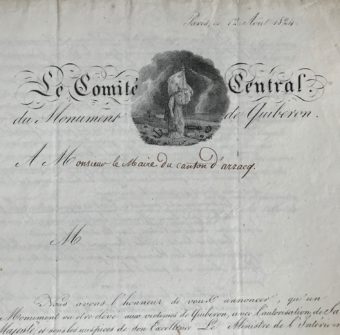 Paris, ce 12 Août 1824.
Le Comité Central
du Monument de Quiberon.
A Monsieur le Maire du canton d'arzacq.
M
Nous avons l'honneur de vous annoncer, qu'un
Monument va être élevé aux victimes de Quiberon, avec l'autorisation de Sa
Majesté, et sous les auspices de son Excellence Le Ministre de l'Intérieur